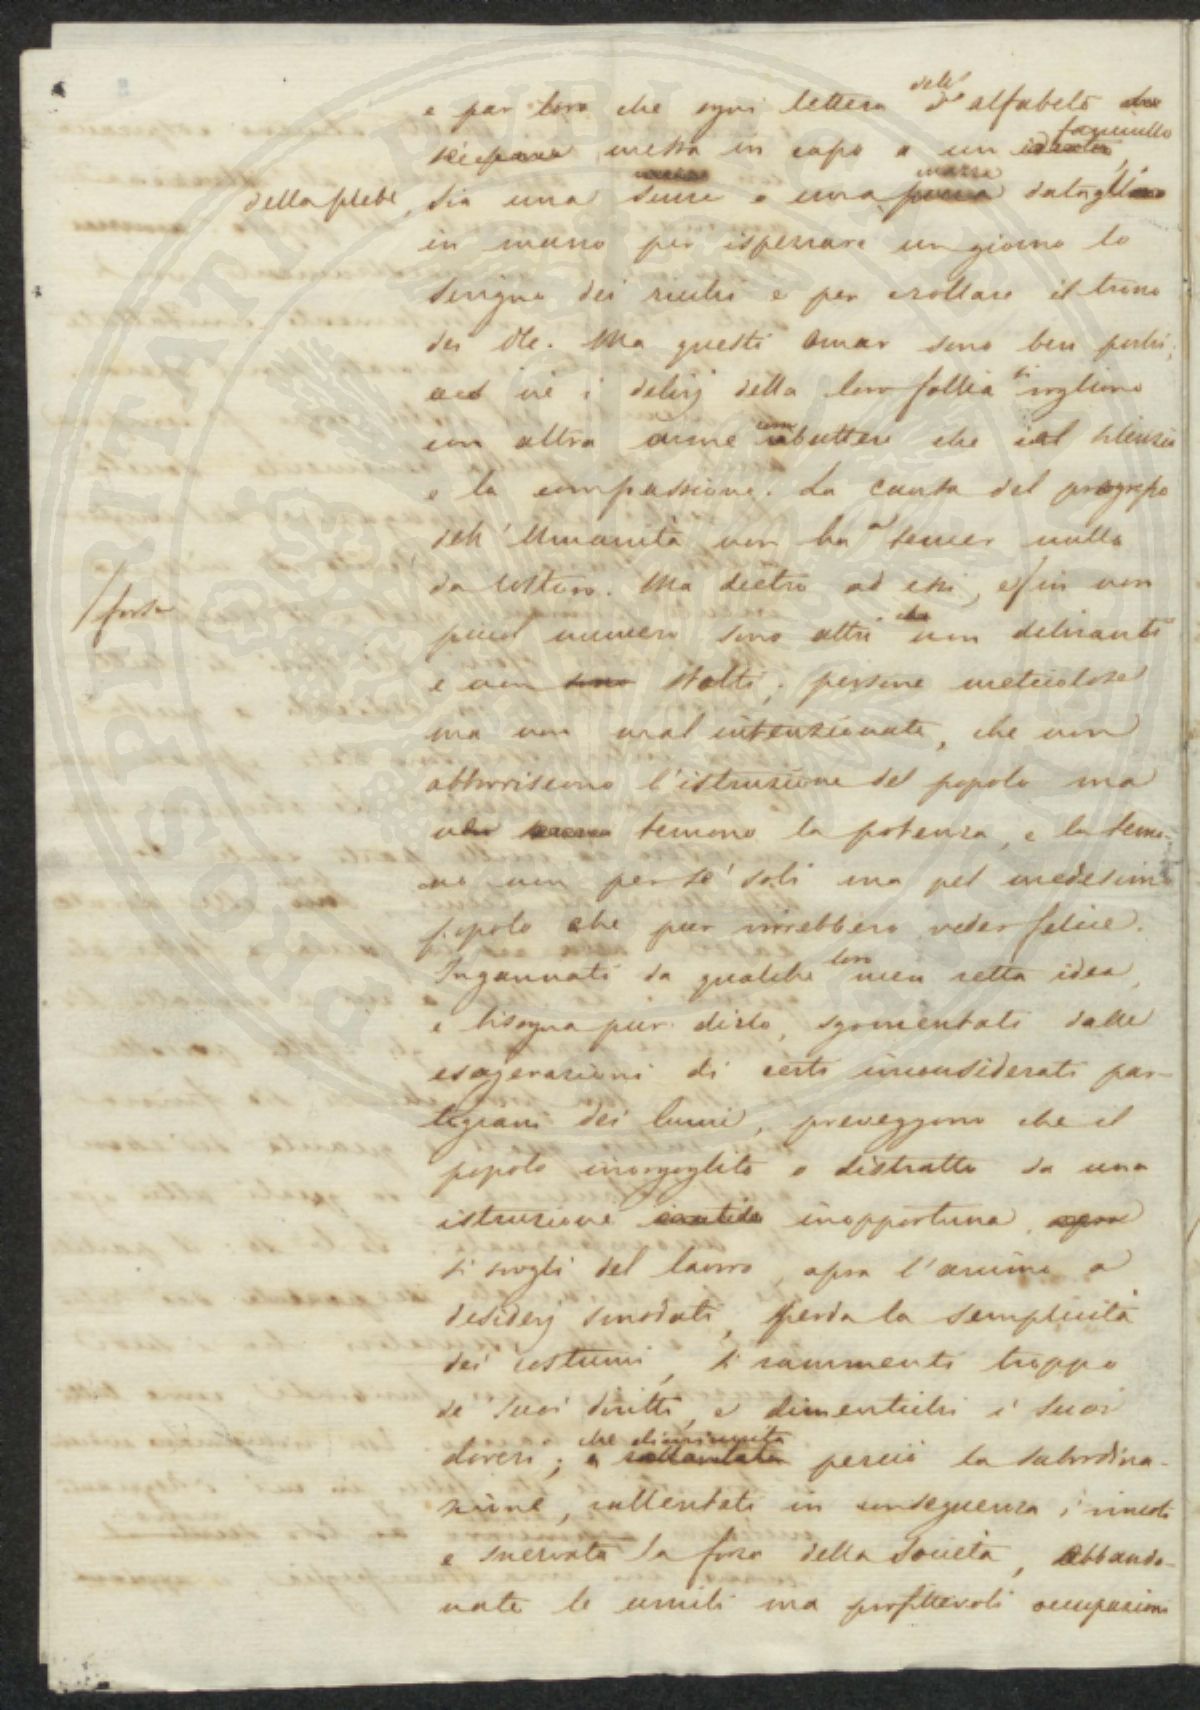 dell'
e par loro che ogni lettera d' alfabeto che
fanciullo
si pone messa in capo a un idiota,
massa
della plebe, sia una scure o una data gli
in mano per ispezzare un giorno lo
scrigno dei ricchi e per crollare il trono
dei Re. Ma questi Omar sono ben pochi,
nè i delirj della loro follia si vogliono
con altra arme combattere che col silenzio
e la compassione. La causa del progresso
dell'Umanità non ha a temer nulla
da costoro. Ma dietro ad essi, e in non
/forse
picciol numero sono altri che non deliranti
e non sono stolti; persone meticolose
ma non mal intenzionate, che non
abborriscono l'istruzione del popolo ma
ne temono la potenza, e la temo-
no non per sè soli ma pel medesimo
popolo che pur vorrebbero veder felice.
Ingannati da qualche loro men retta idea,
e bisogna pur dirlo, sgomentati dalle
esagerazioni di certi inconsiderati par-
tigiani dei lumi, preveggono che il
popolo inorgoglito o distratto da una
istruzione inopportuna, apra
si svogli del lavoro, apra l'animo a
desiderj smodati, perda la semplicità
dei costumi, si rammenti troppo
de' suoi diritti, e dimentichi i suoi
doveri; che diminuita perciò la subordina-
zione, rallentati in conseguenza i vincoli
e snervata la forza della Società, abbando-
nate le umili ma profittevoli occupazioni